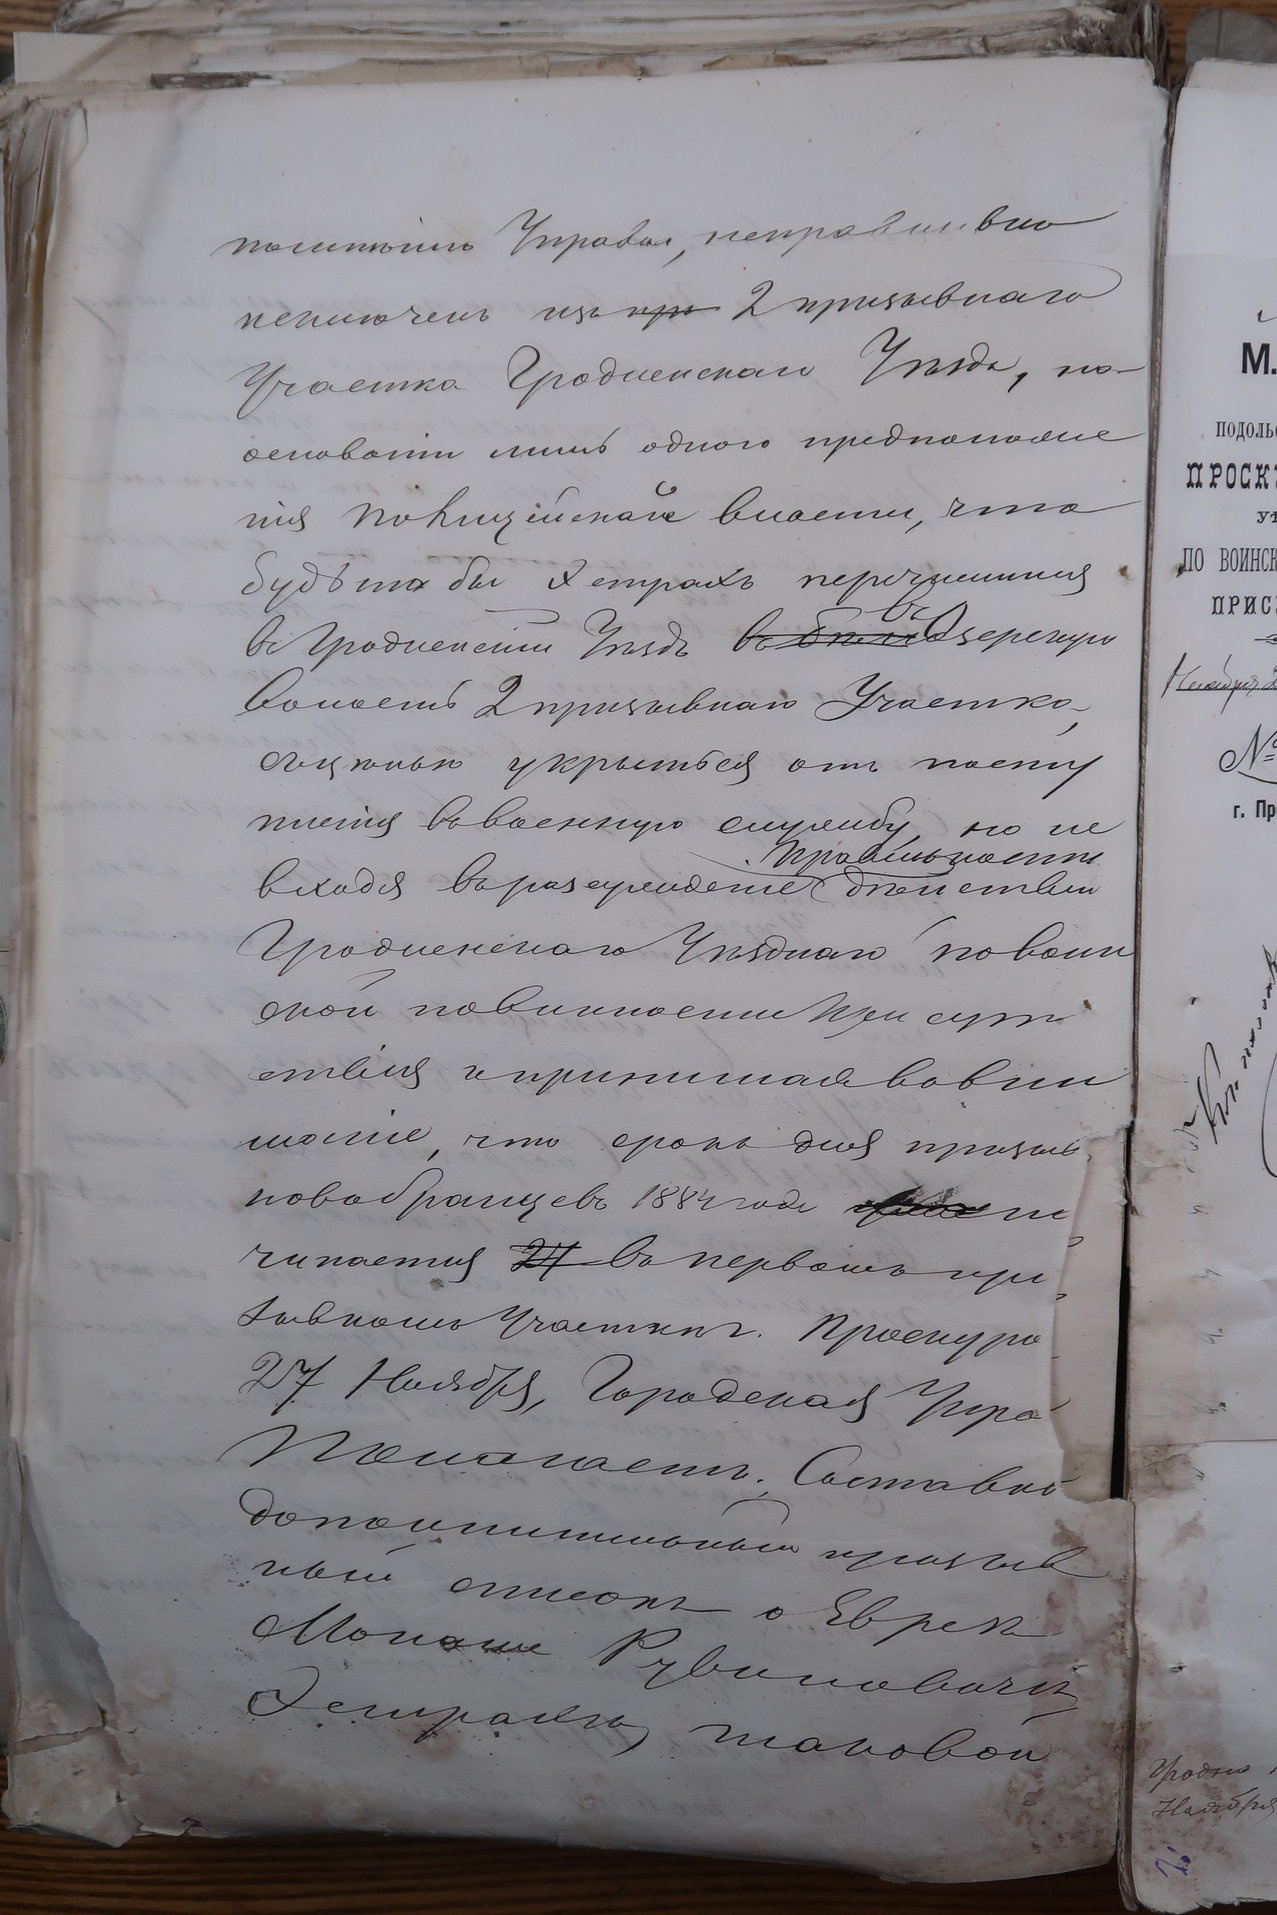 Управы, неправильно
исключенъ изъ при 2 призывнаго
Участка Гродненскаго Уѣзда, на
основаніи лишь одного предположе
нія Полицейской власти, что
будьто бы Хетрахъ перечислился
въ Гродненскій Уѣздъ въ Озерскую
волость 2 призывнаго Участка,
съ цѣлью укрыться отъ посту
пленія въ военную службу, но не
правильности
входя въ разсужденіе дѣйствій
Гродненскаго Уѣзднаго по воин
ской повинности Присут
ствія и принимая во вни
маніе, что срокъ для призыва
новобранцевъ 1884 года на
чинается 27 въ первомъ при
зывномъ Участкѣ г. Проскуро
27 Ноября, Городская Упра
Полагаетъ: Составив
дополнительный призыв
ный списокъ о Евреѣ
Рувиновичѣ
таковой
М.
ПОДОЛЬС
ПРОСКУ
УѢ
ПО ВОИНСК
ПРИС
Ноября 2
№
г. Пр
Гродно
Ноября